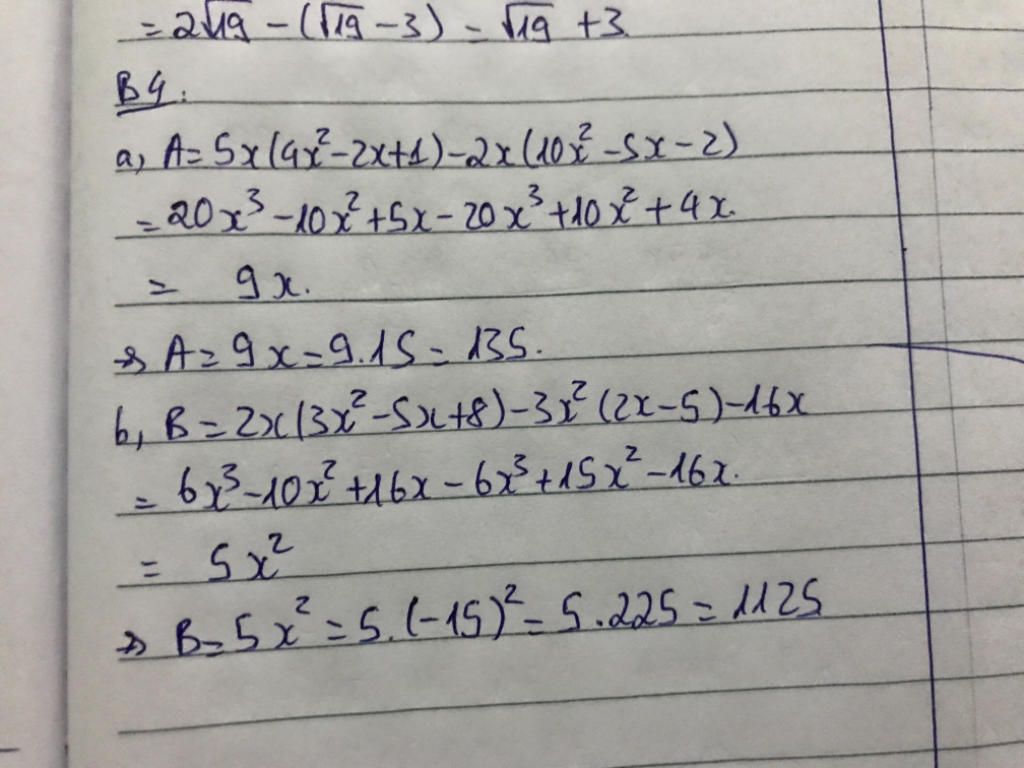 = 2√19 - (√19 - 3) = √19 + 3
B4:
a, A = 5x(4x² - 2x + 1) - 2x(10x² - 5x - 2)
= 20x³ - 10x² + 5x - 20x³ + 10x² + 4x.
= 9x.
→ A = 9x = 9.15 = 135.
b, B = 2x(3x² - 5x + 8) - 3x²(2x - 5) - 16x
= 6x³ - 10x² + 16x - 6x³ + 15x² - 16x.
= 5x²
→ B = 5x² = 5.(-15)² = 5.225 = 1125